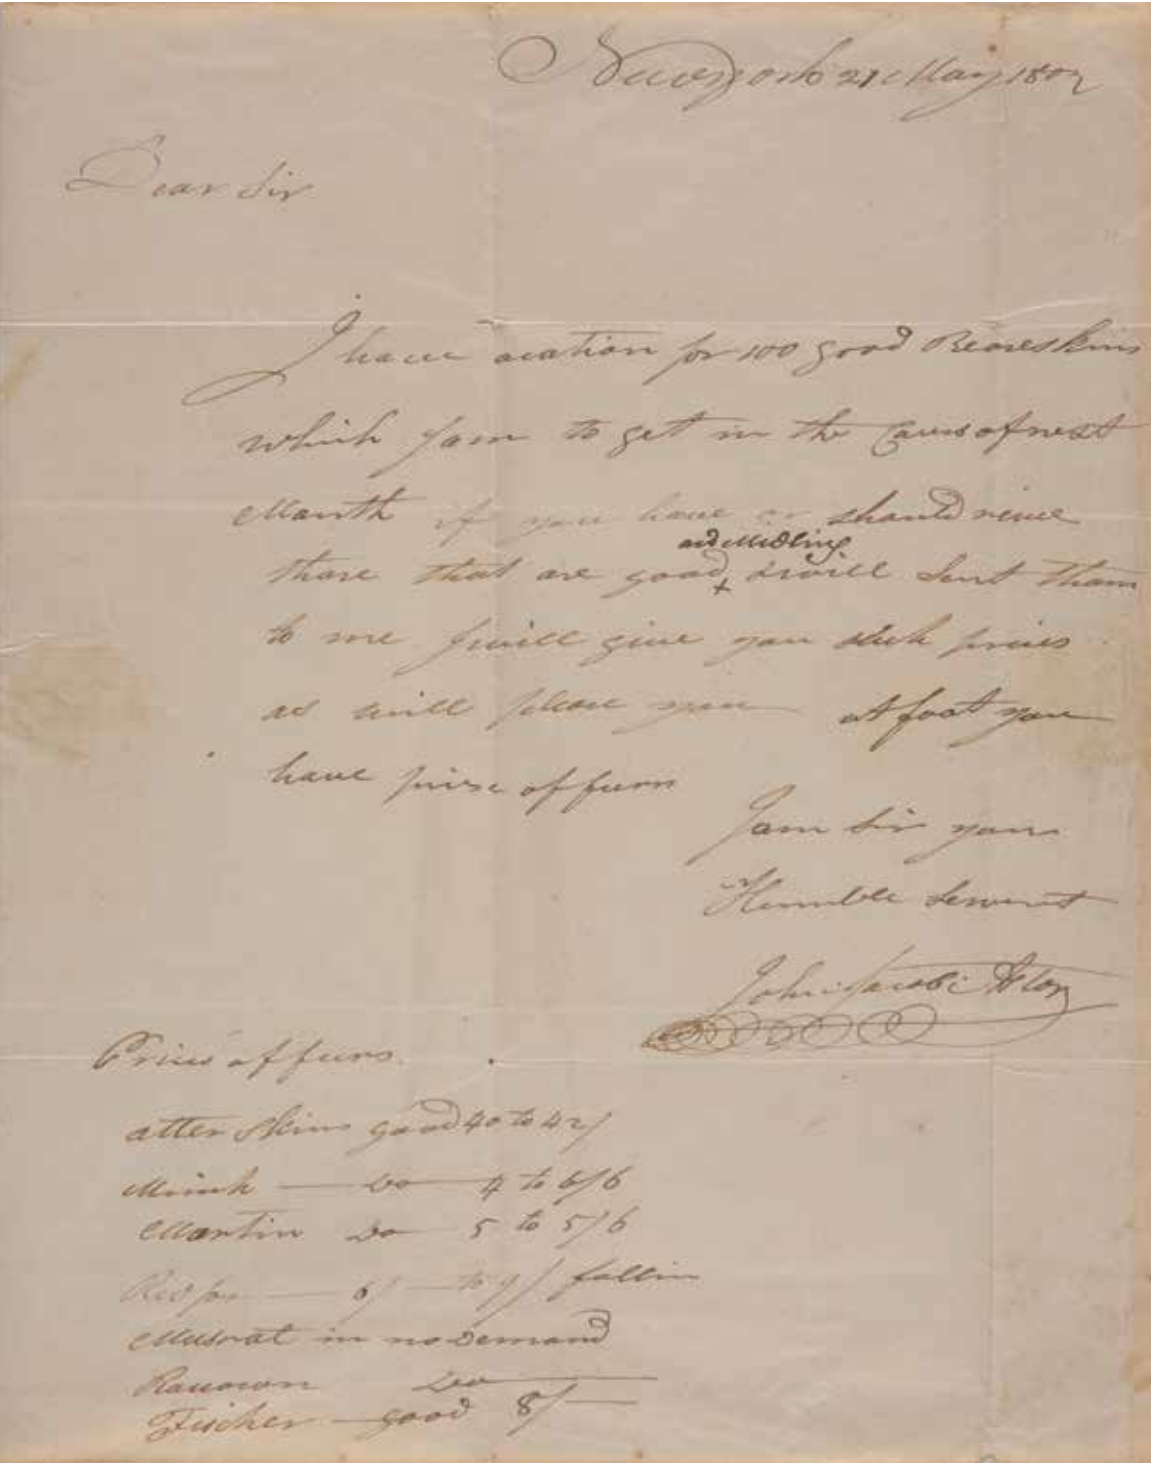 Newyork 21 May 1802
Dear Sir
I have ocation for 100 good Beareskins
which Jam to get in the Cours of next
Month if you have or should recive
and Midling
those that are good + & will Sent tham
to me J will give you such prices
as will please you at foot you
have prise of furrs
Jam Sir your
Humble Servent
John Jacob Astor
Prices of furrs
otter skins good 40 to 42/
Minck — Do — 4 to 6/6
Martin Do — 5 to 5/6
Red fox — 6/ — to 9/ fallin
Musrat in no Demand
Racoown Do —
Fischer — good 8/ —